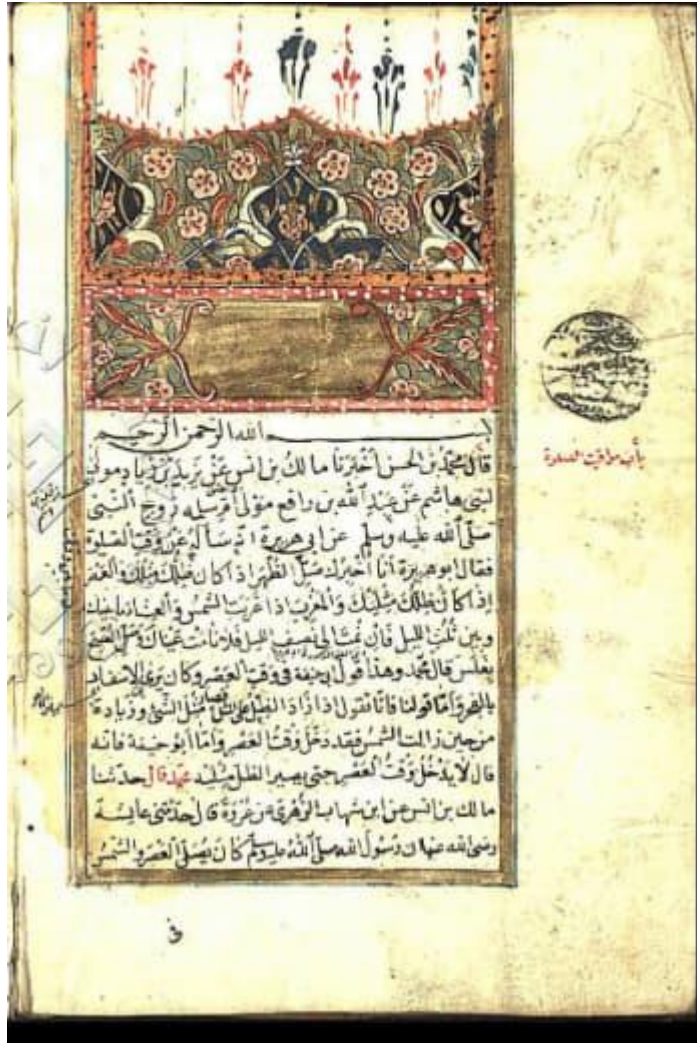 بسم الله الرحمن الرحيم
قال محمد بن الحسن اخبرنا مالك بن انس عن يزيد بن زياد مولى
لبنى هاشم عن عبد الله بن رافع مولى ام سلمه زوج النبى
صلى الله عليه وسلم عن ابى هريرة انه سأله عن وقت الصلوة
فقال ابو هريرة أنا أخبرك صل الظهر اذا كان ظلك مثلك والعصر
إذا كان ظلك مثليك والمغرب اذا غربت الشمس والعشاء ما بينك
وبين ثلث الليل فان نمت الى نصف الليل فلا نامت عيناك وصل الصبح
بغلس قال محمد وهذا قول ابى حنيفة فى وقت العصر وكان يرى الاسفار
بالفجر وأما قولنا فانا نقول اذا زاد الظل على المثل فصار مثل الشئ وزيادة
من حين زالت الشمس فقد دخل وقت العصر واما أبو حنيفة فانه
قال لا يدخل وقت العصر حتى يصير الظل مثليه محمد قال حدثنا
مالك بن انس عن ابن شهاب الزهرى عن عروة قال حدثتنى عايشة
رضى الله عنها ان رسول الله صلى الله عليه وسلم كان يصلى العصر والشمس
فى
باب مواقيت الصلوة